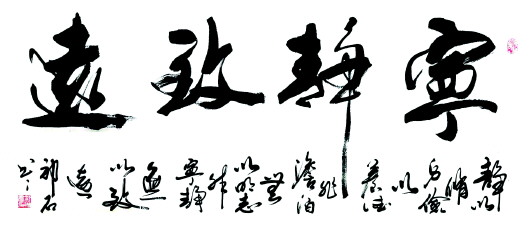 寧靜致遠
靜以脩身儉以養德非澹泊無以明志非寧靜無以致遠